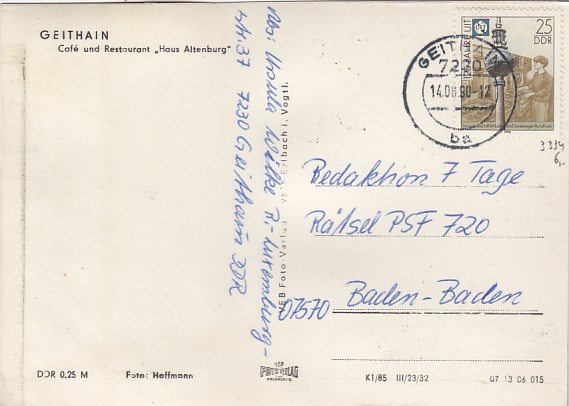 GEITHAIN
Café und Restaurant „Haus Altenburg"
Abs. Ursula Wilke R.-Luxemburg-
Str. 37 7230 Geithain DDR
VEB Foto-Verlag Erlbach i. Vogtl.
25
DDR
GEITHAIN 1
7230
14.08.90-12
ba
3334
6,-
Redaktion 7 Tage
Rätsel PSF 720
07570 Baden-Baden
DDR 0,25 M Foto: Hoffmann
K1/85 III/23/32 07 13 06 015